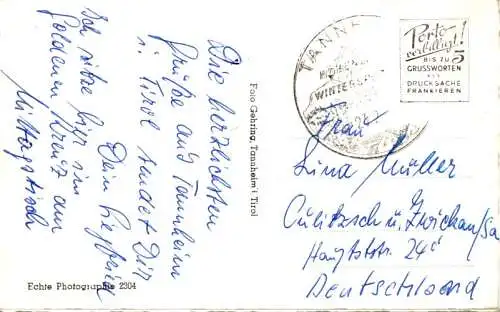 Die herzlichsten
Grüße aus Tannheim
i. Tirol sendet Dir
Dein Siegfried
Ich sitze hier im
Goldenen Kreuz am
Mittagstisch
Foto Gehring, Tannheim i. Tirol
Echte Photographie 2304
TANNH
WINTERSP
Porto
verbilligt!
BIS ZU 5
GRUSSWORTEN
ALS
DRUCKSACHE
FRANKIEREN
Frau
Lina Müller
Culitzsch ü. Zwickau/Sa
Hauptstr. 24c
Deutschland